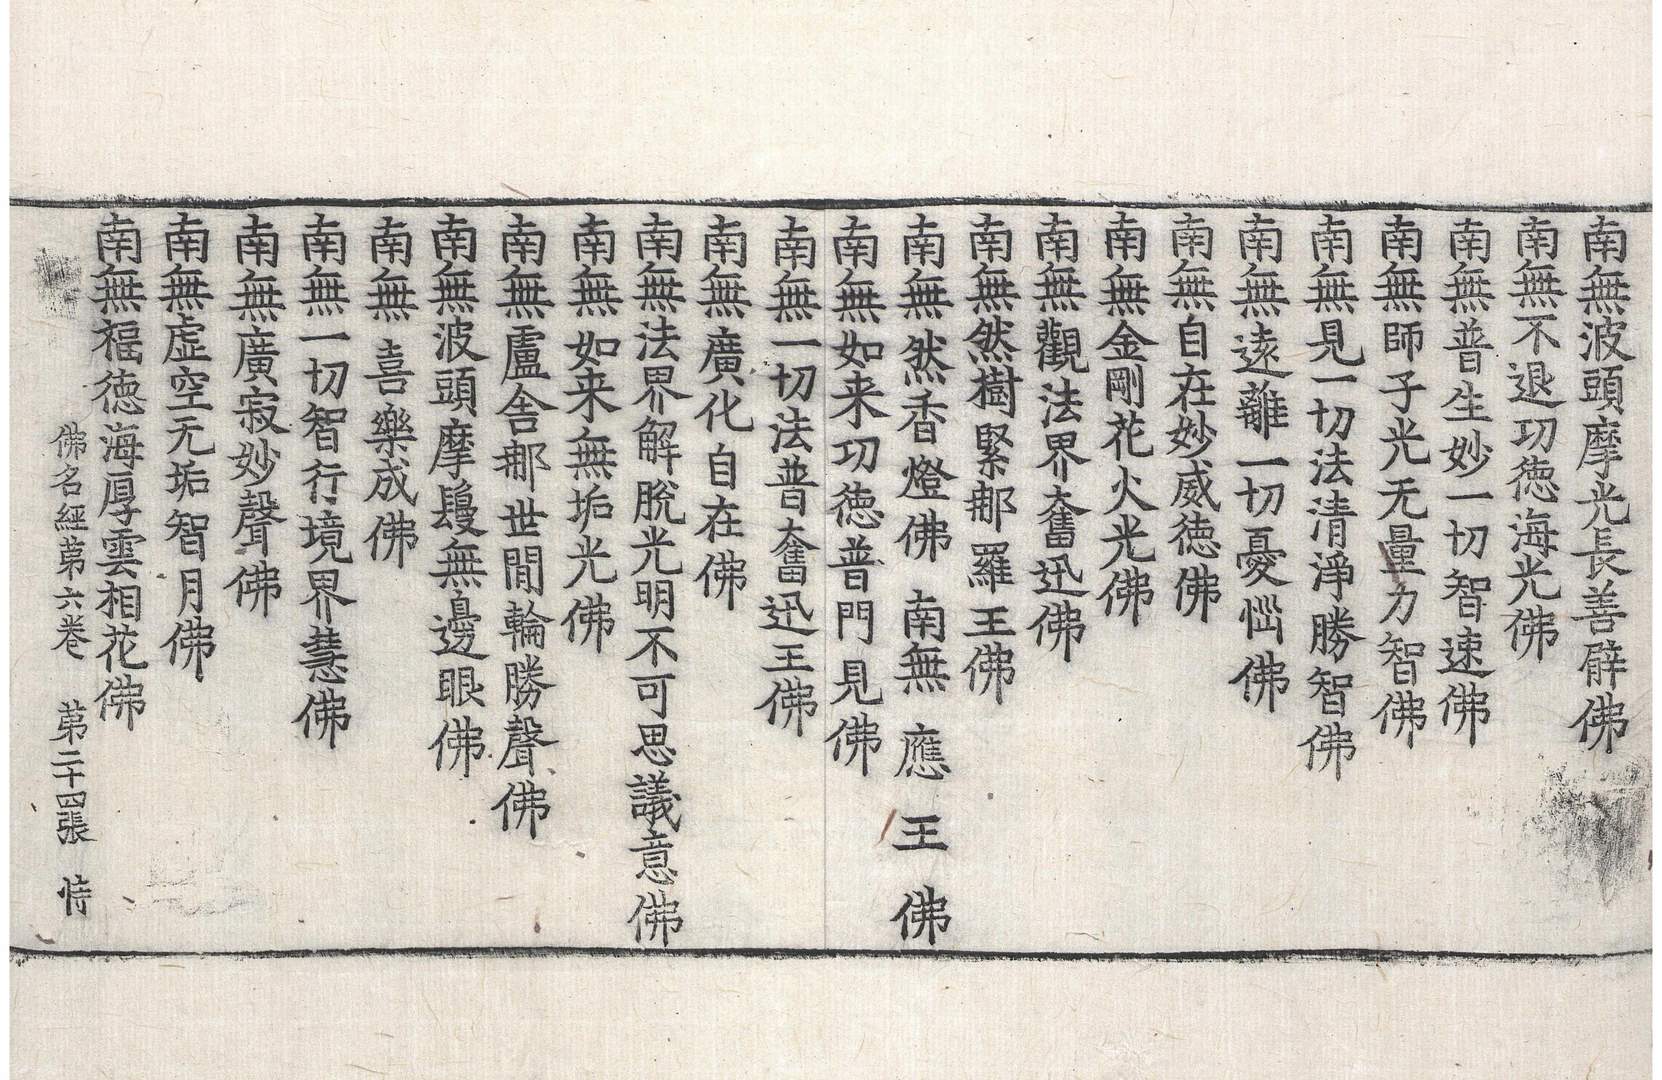 南無波頭摩光長善臂佛
南無不退功徳海光佛
南無普生妙一切智速佛
南無師子光无量力智佛
南無見一切法清淨勝智佛
南無遠離一切憂惱佛
南無自在妙威徳佛
南無金剛花火光佛
南無觀法界奮迅佛
南無然樹緊那羅王佛
南無然香燈佛 南無應王佛
南無如来功徳普門見佛
南無一切法普奮迅王佛
南無廣化自在佛
南無法界解脫光明不可思議意佛
南無如来無垢光佛
南無盧舍那世間輪勝聲佛
南無波頭摩鬘無邊眼佛
南無喜樂成佛
南無一切智行境界慧佛
南無廣寂妙聲佛
南無虚空无垢智月佛
南無福徳海厚雲相花佛
佛名經苐六卷 苐二十四張 恃